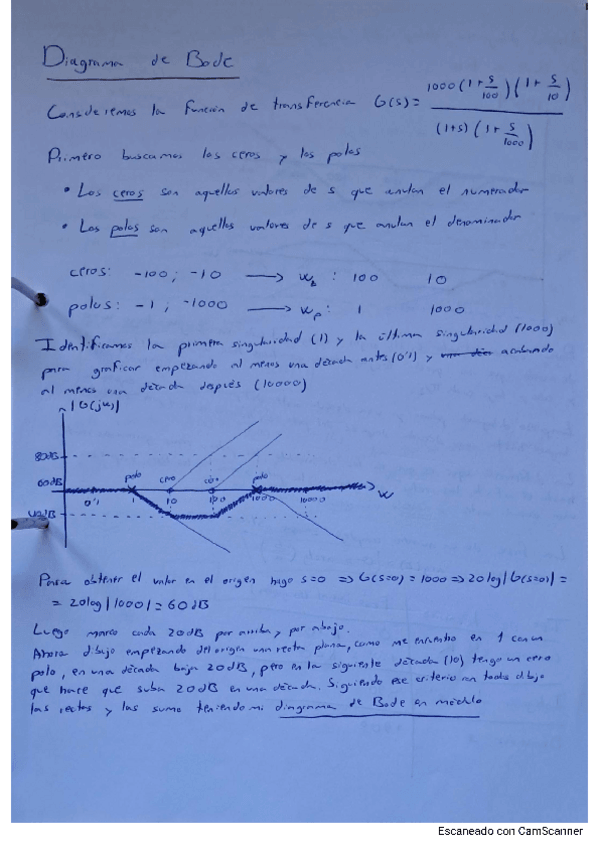 Diagrama de Bode
Consideremos la función de transferencia G(s) = 1000 (1 + s/100) (1 + s/10) / (1+s) (1 + s/1000)
Primero buscamos los ceros y los polos
• Los ceros son aquellos valores de s que anulan el numerador
• Los polos son aquellos valores de s que anulan el denominador
ceros: -100 ; -10 → wz : 100 10
polos: -1 ; -1000 → wp : 1 1000
Identificamos la primera singularidad (1) y la última singularidad (1000)
para graficar empezando al menos una década antes (0'1) y acabando
al menos una década después (10000)
|G(jw)|
80dB
polo cero cero polo
60dB
0'1 1 10 100 1000 10000 w
40dB
Para obtener el valor en el origen hago s=0 => G(s=0) = 1000 => 20log|G(s=0)| =
= 20log|1000| = 60dB
Luego marco cada 20dB por arriba y por abajo.
Ahora dibujo empezando del origen una recta plana, como me encuentro en 1 con un
polo, en una década baja 20dB, pero en la siguiente década (10) tengo un cero
que hace que suba 20dB en una década. Siguiendo ese criterio con todos dibujo
las rectas y las sumo teniendo mi diagrama de Bode en módulo
Escaneado con CamScanner